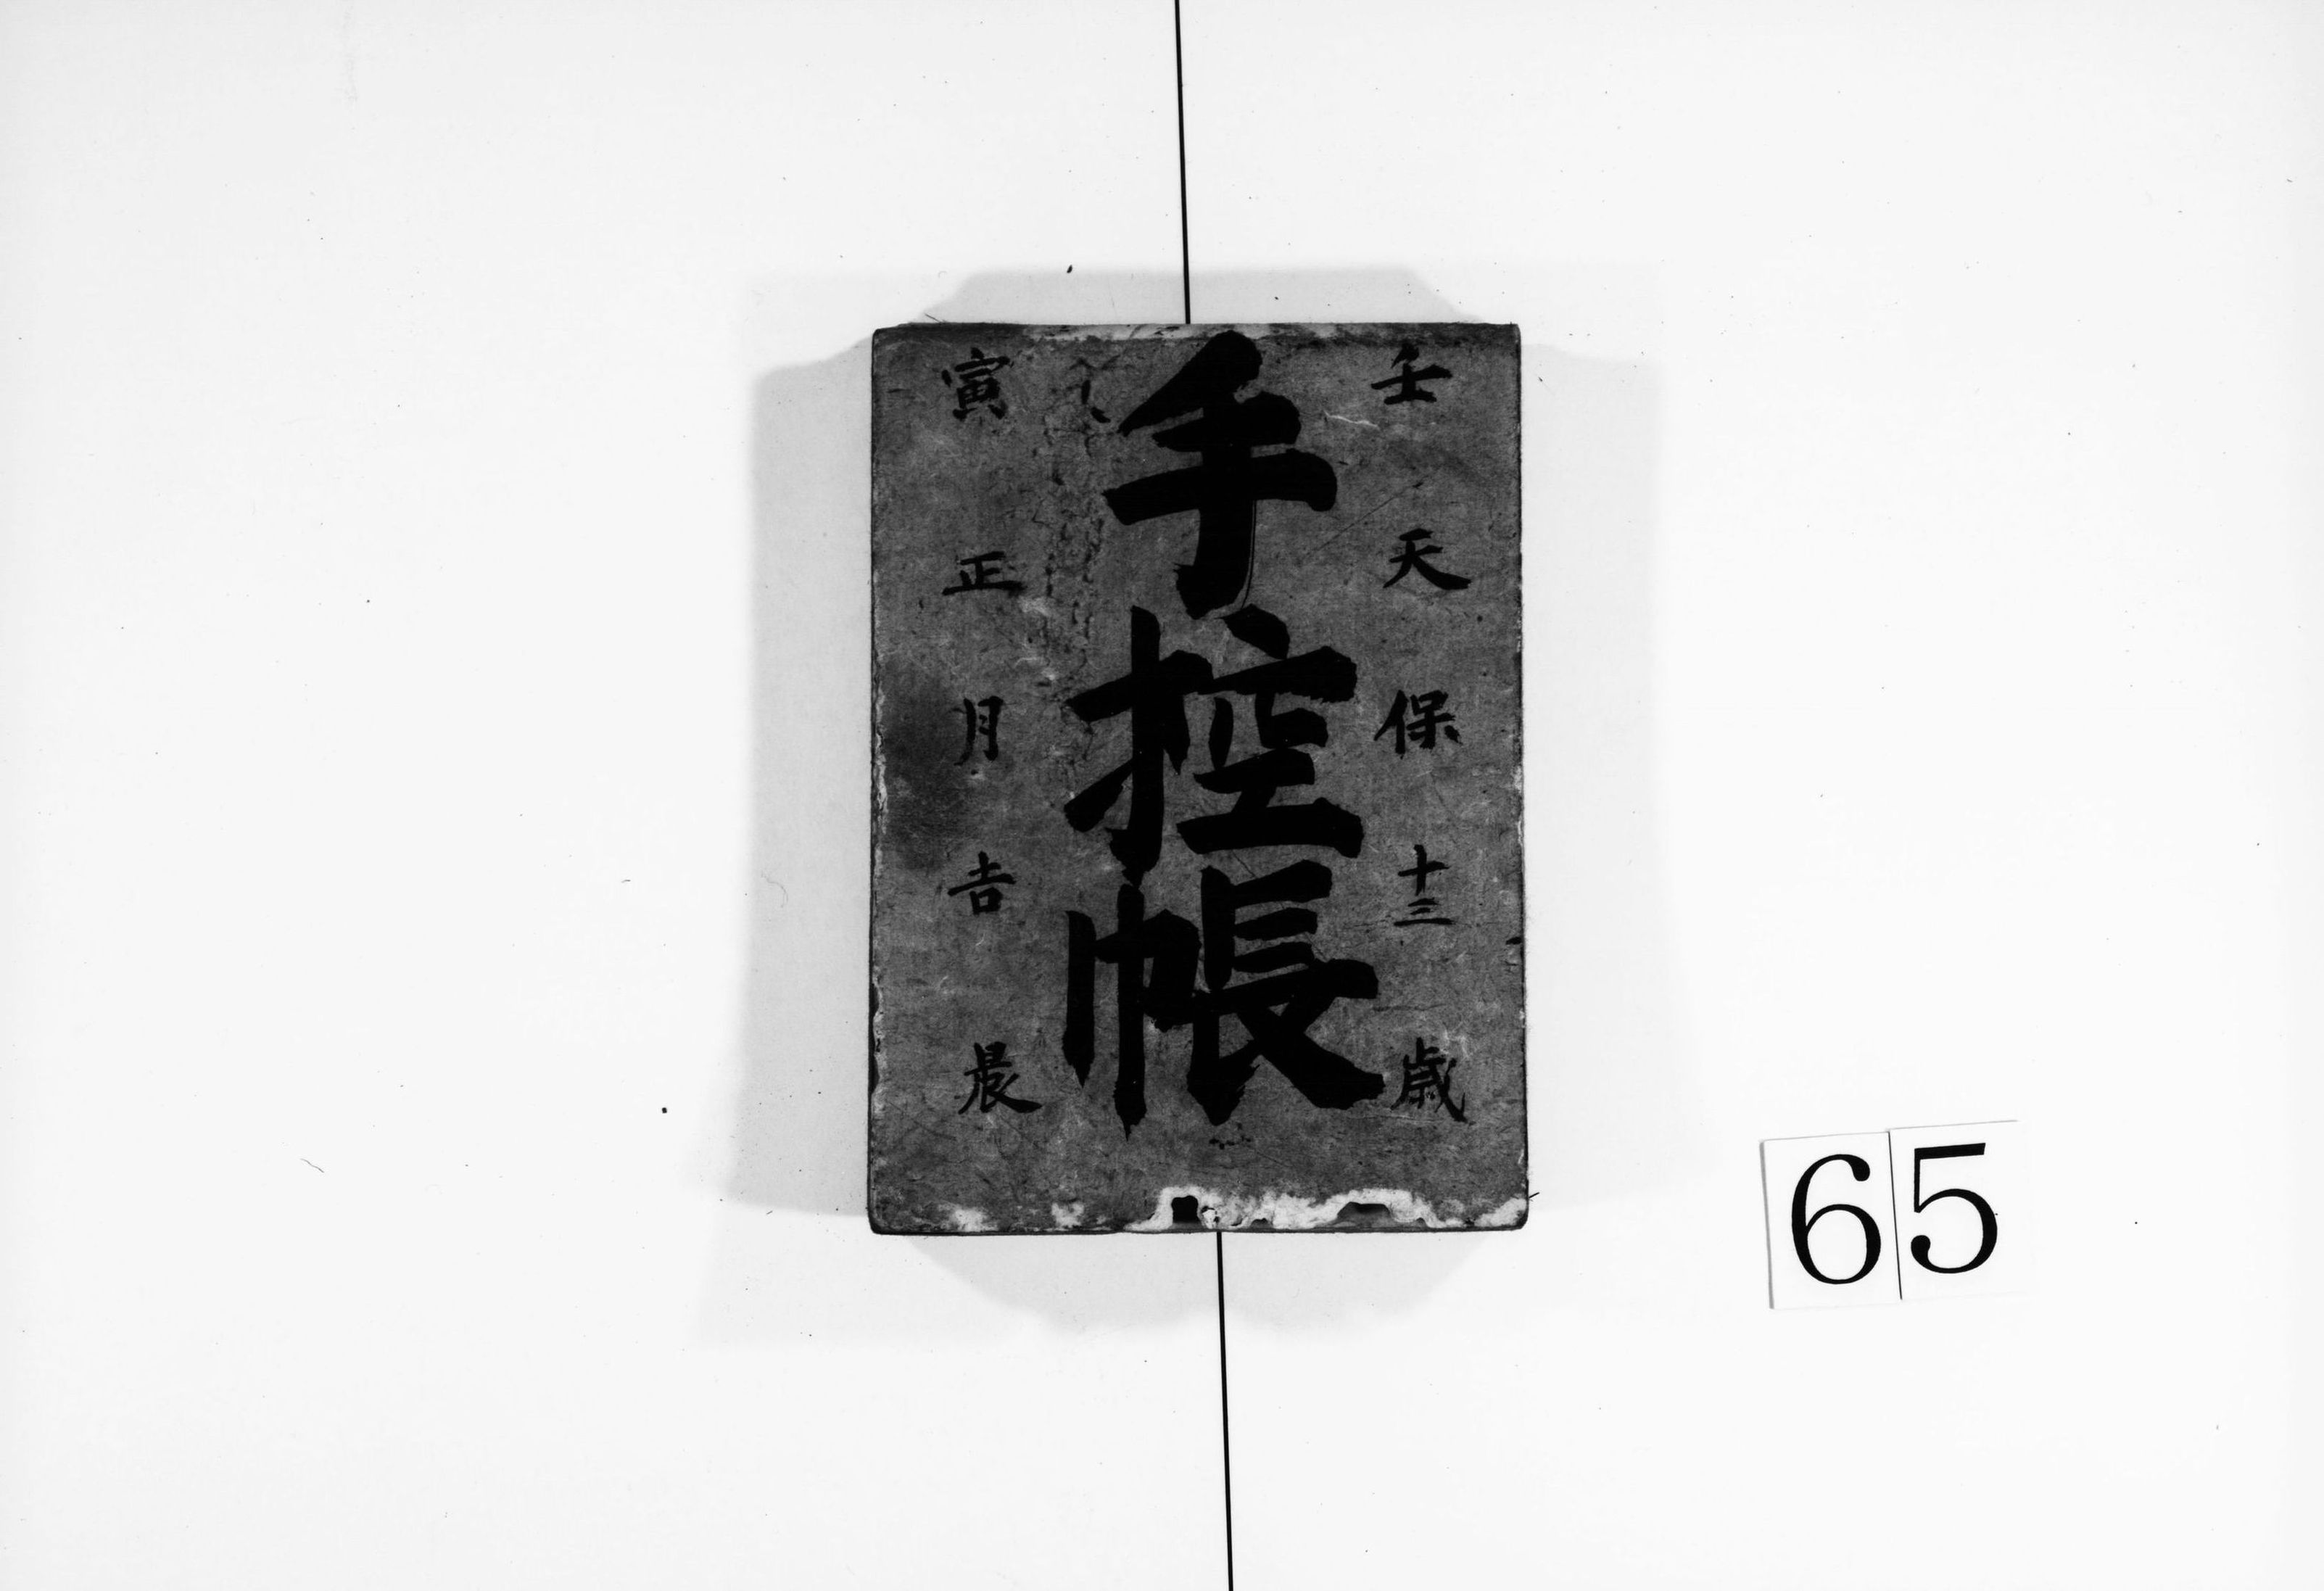 壬天保十三歳
手控帳
寅正月吉晨
65